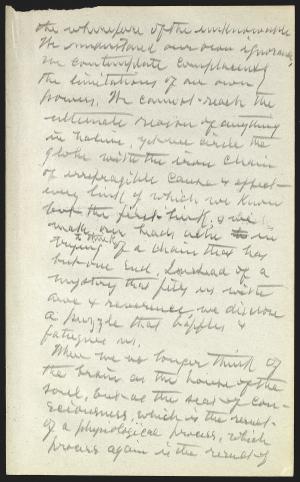 the wherefore of the unknowable
We understand our own ignorance,
we contemplate complacently
the limitations of our own
powers. We cannot reach the
ultimate reason of anything
in nature, yet we circle the
globe with the iron chain
of irrefragible cause & effect
every link of which we know
but the first link, & we
make our heads ache in
trying to of a chain that has
but one End. Instead of a
mystery that fills us with
awe & reverence, we discover
a puzzle that baffles &
fatigues us.
When we no longer think of
the brain as the house of the
soul, but as the seat of con-
sciousness, which is the result
of a physiological process, which
process again is the result of